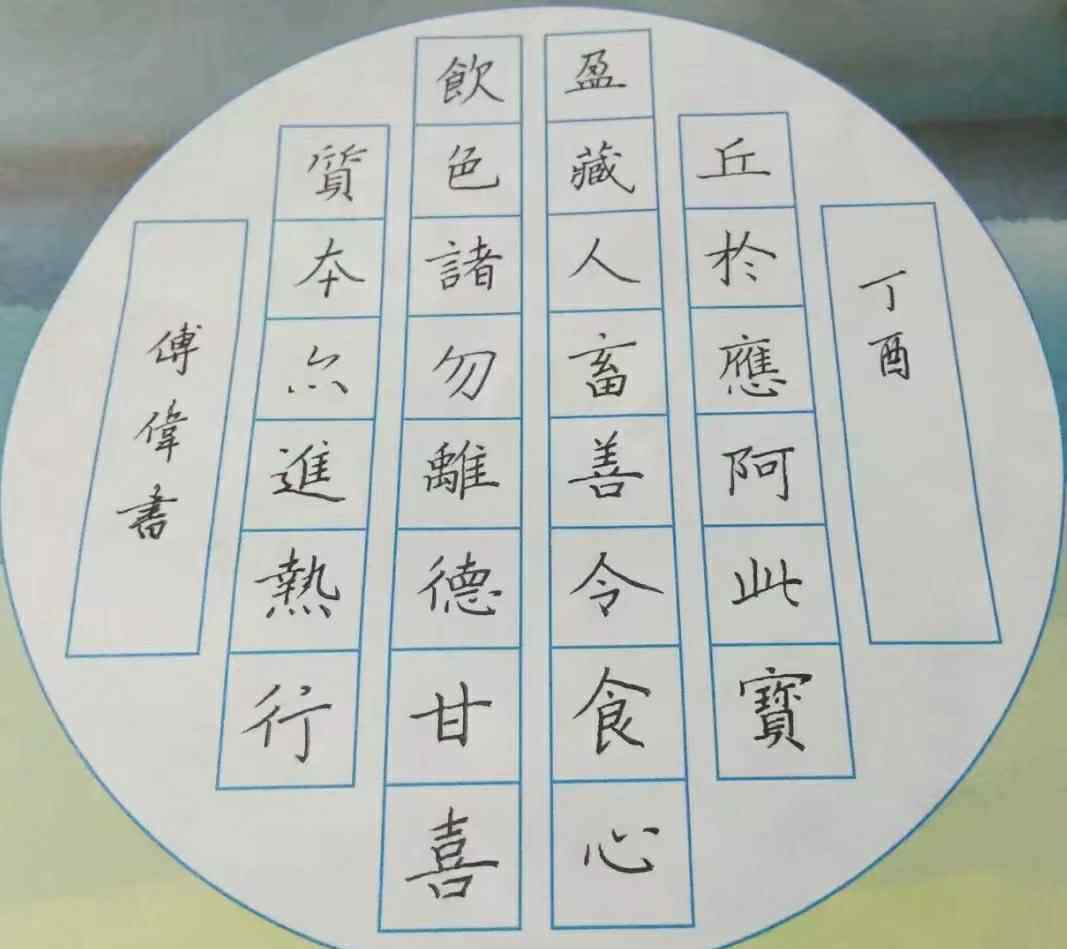 丁酉
丘於應阿此寶
盈藏人畜善令食心
飲色諸勿離德甘喜
質本尒進熱行
傅偉書